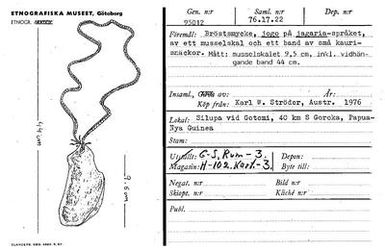 ETNOGRAFISKA MUSEET, Göteborg
ETNOGR.
Gen. n:r
Saml. n:r
Dep. n:r
95012
76.17.22
Föremål: Bröstsmycke, joge på jagaria-språket,
av ett musselskal och ett band av små kauri-
snäckor. Mått: musselskalet 9,5 cm, inkl. vidhän-
gande band 44 cm.
Insaml., av:
Köp från: Karl W. Ströder, Austr. 1976
Lokal: Silupa vid Gotomi, 40 km S Goroka, Papua-
Nya Guinea
Stam:
Utställt: G-S, Rum-3.
Depon:
Magasin: H-102. Kart.-3.
Byte till:
Negat. n:r
Bild n:r
Skiopt. n:r
Kliché n:r
Publ.